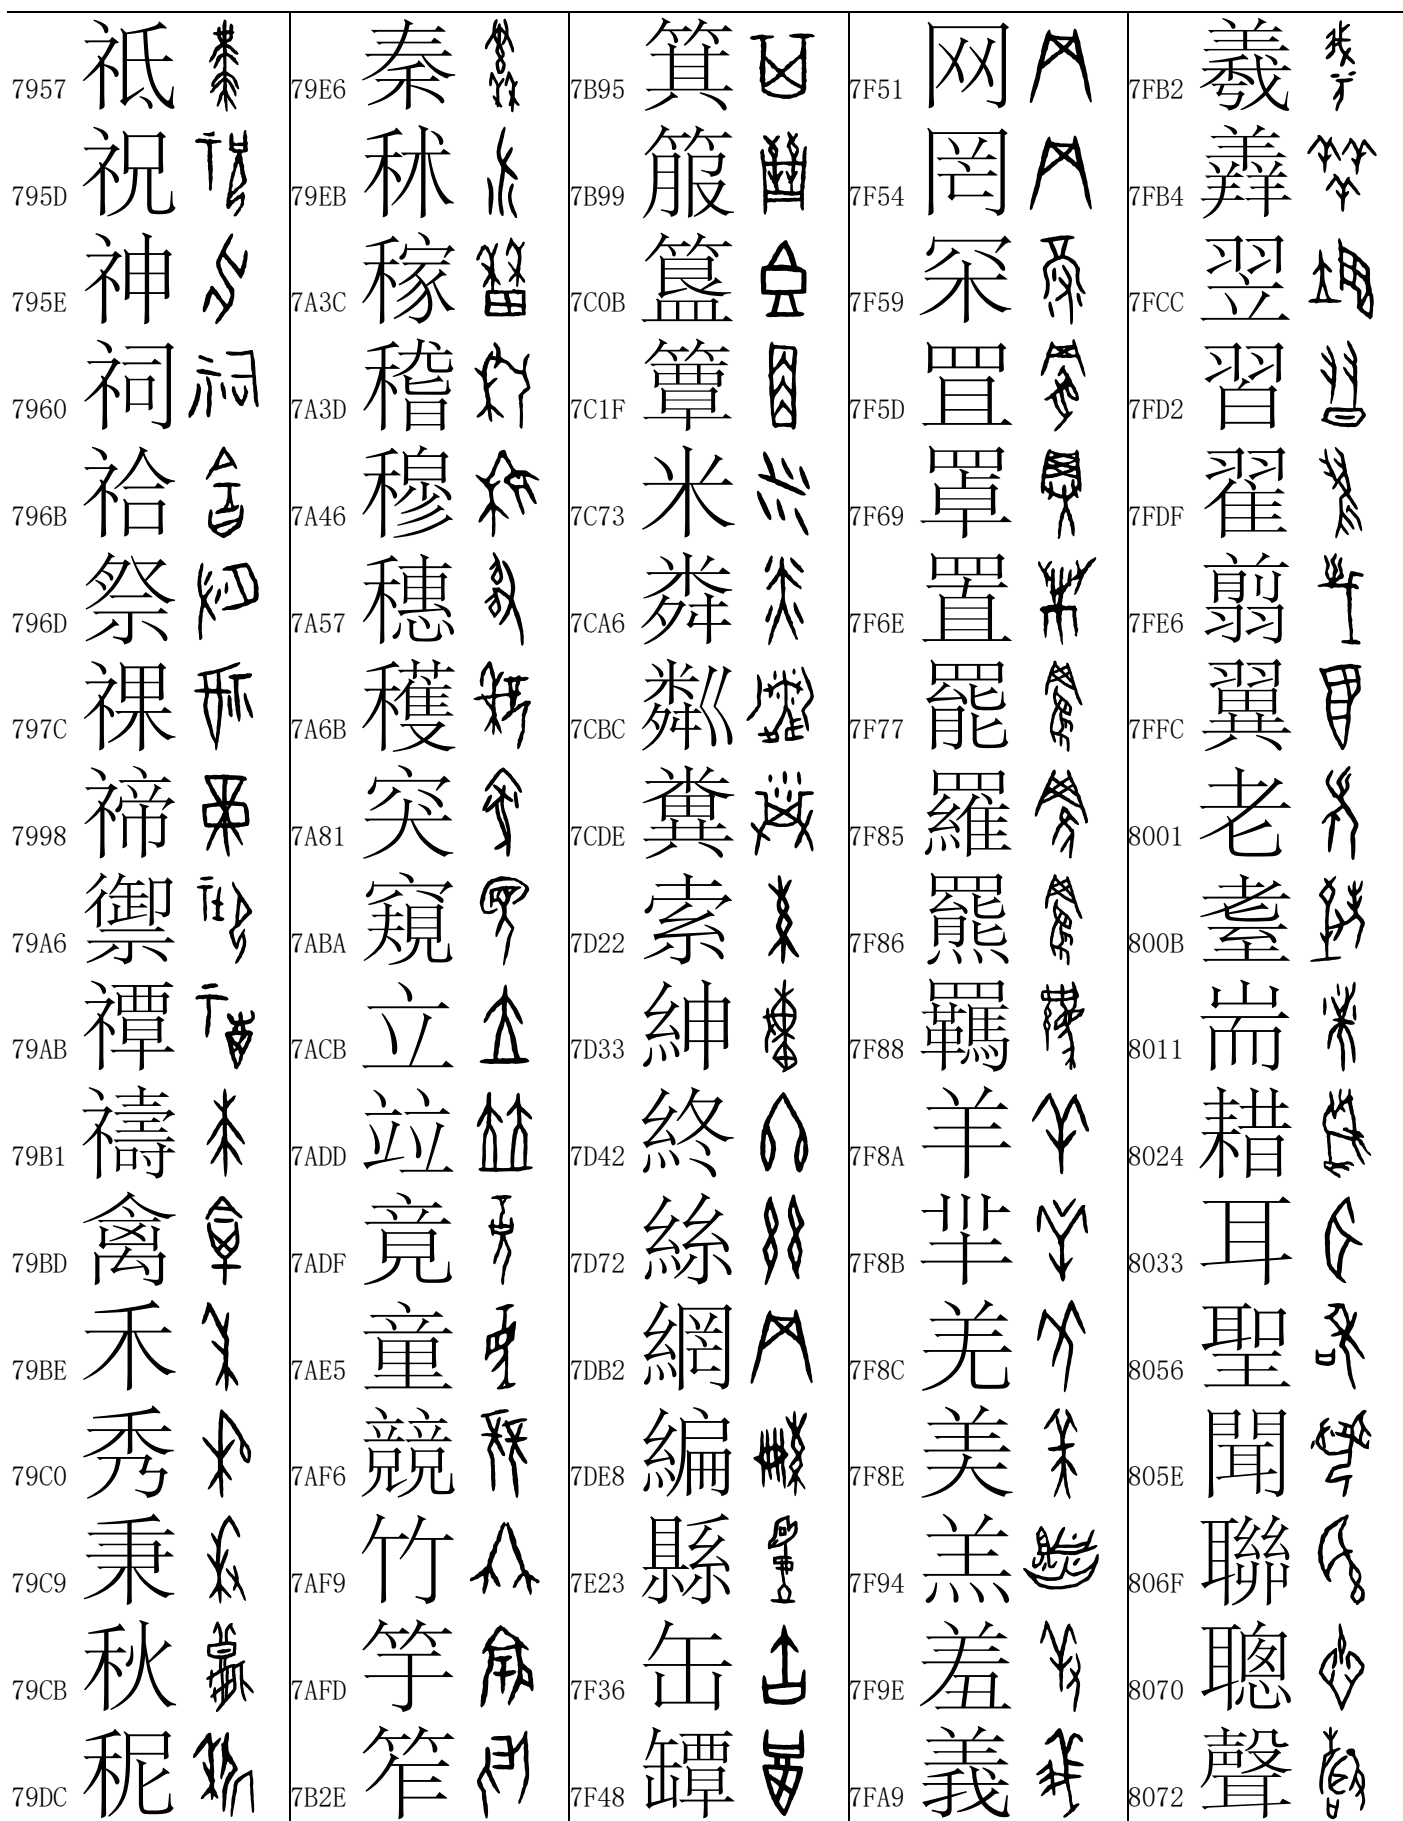 7957 祗
795D 祝
795E 神
7960 祠
796B 祫
796D 祭
797C 祼
7998 禘
79A6 禦
79AB 禫
79B1 禱
79BD 禽
79BE 禾
79C0 秀
79C9 秉
79CB 秋
79DC 秜
79E6 秦
79EB 秫
7A3C 稼
7A3D 稽
7A46 穆
7A57 穗
7A6B 穫
7A81 突
7ABA 窺
7ACB 立
7ADD 竝
7ADF 竟
7AE5 童
7AF6 競
7AF9 竹
7AFD 竽
7B2E 笮
7B95 箕
7B99 箙
7C0B 簋
7C1F 簟
7C73 米
7CA6 粦
7CBC 粼
7CDE 糞
7D22 索
7D33 紳
7D42 終
7D72 絲
7DB2 網
7DE8 編
7E23 縣
7F36 缶
7F48 罈
7F51 网
7F54 罔
7F59 罙
7F5D 罝
7F69 罩
7F6E 置
7F77 罷
7F85 羅
7F86 羆
7F88 羈
7F8A 羊
7F8B 羋
7F8C 羌
7F8E 美
7F94 羔
7F9E 羞
7FA9 義
7FB2 羲
7FB4 羴
7FCC 翌
7FD2 習
7FDF 翟
7FE6 翦
7FFC 翼
8001 老
800B 耋
8011 耑
8024 耤
8033 耳
8056 聖
805E 聞
806F 聯
8070 聰
8072 聲